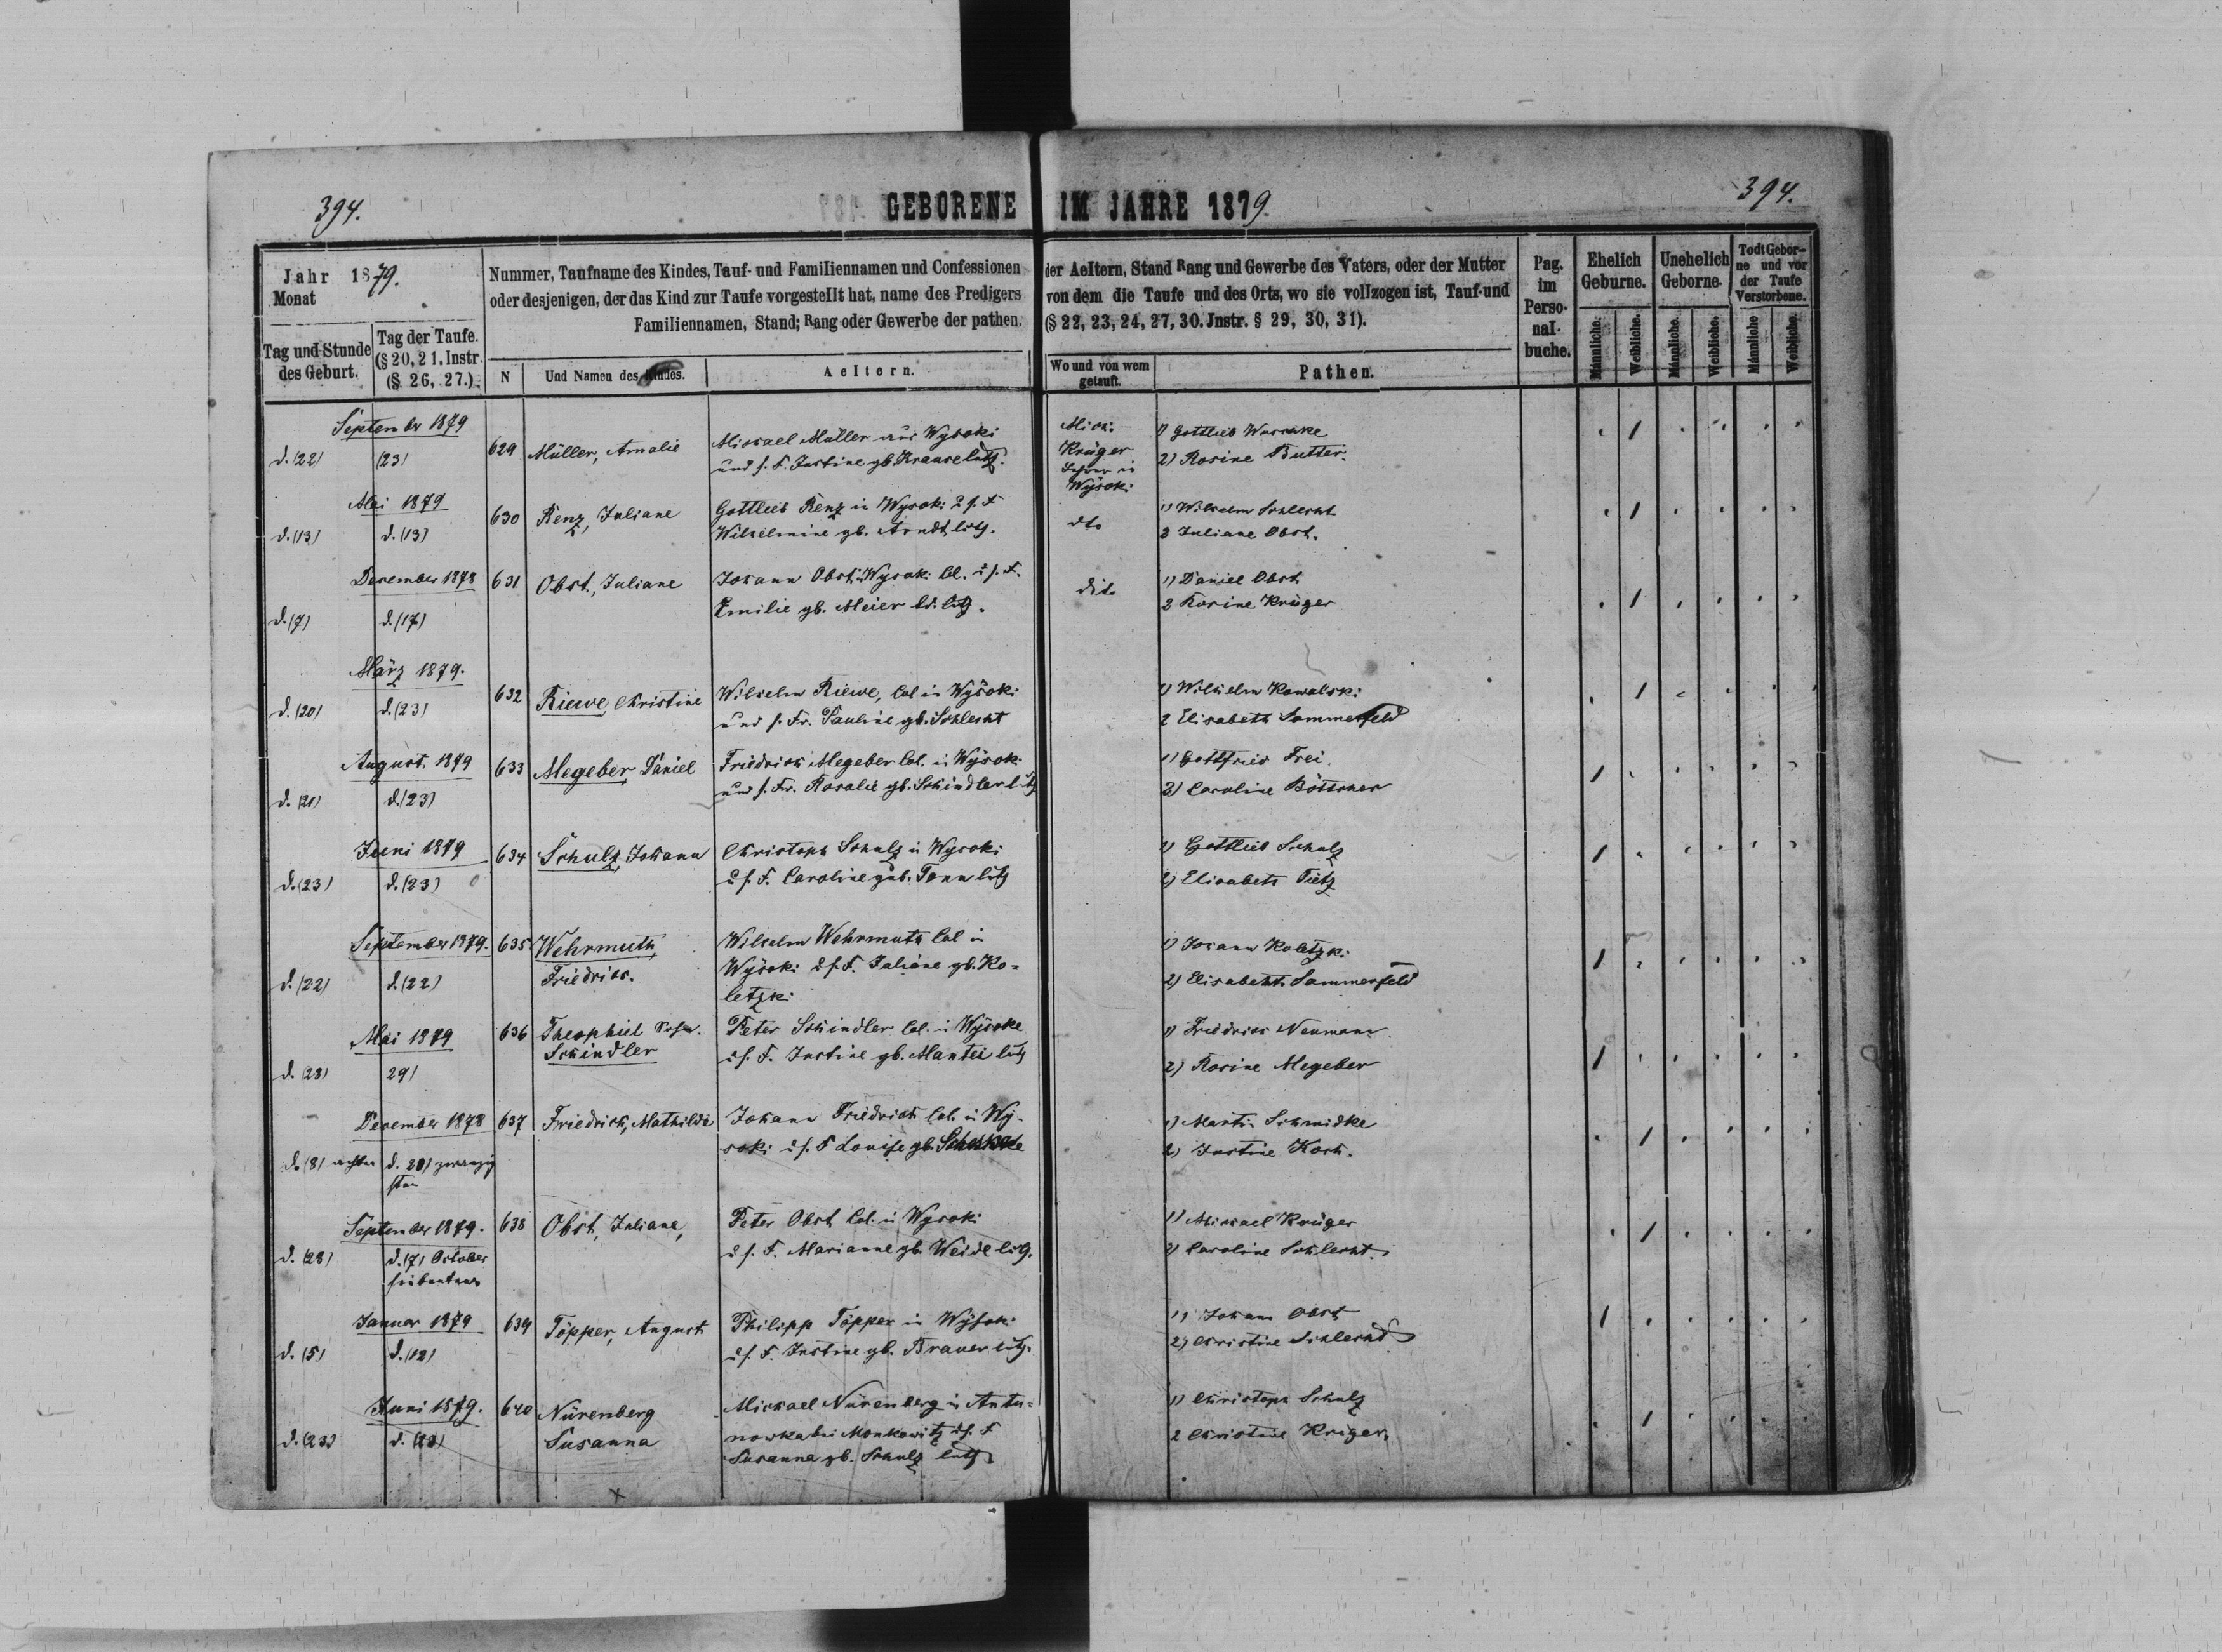 394.
GEBORENE IM JAHRE 1879.
394.
Jahr 1879.
Monat
Tag und Stunde
des Geburt.
Tag der Taufe.
(§ 20, 21. Instr.
(§. 26, 27.).
Nummer, Taufname des Kindes, Tauf- und Familiennamen und Confessionen
oder desjenigen, der das Kind zur Taufe vorgestellt hat, name des Predigers
Familiennamen, Stand; Rang oder Gewerbe der pathen.
N
Und Namen des Kindes.
Aeltern.
der Aeltern, Stand Rang und Gewerbe des Vaters, oder der Mutter
von dem die Taufe und des Orts, wo sie vollzogen ist, Tauf-und
(§ 22, 23, 24, 27, 30. Jnstr. § 29, 30, 31).
Wo und von wem
getauft.
Pathen.
Pag.
im
Perso-
nal-
buche.
Ehelich
Geburne.
Unehelich
Geborne.
Todt Gebor-
ne und vor
der Taufe
Verstorbene.
Männliche.
Weibliche.
Männliche.
Weibliche.
Männliche
Weibliche.
September 1879
d. (22)
(23)
629
Müller, Amalie
Michael Müller aus Wysoki
und s. F. Justine gb. Krause lutg.
Mich.
Krüger
Lehrer in
Wysoki
1) Gottlieb
2) Rosine Butter.
Mai 1879
d. (13)
d. (13)
630
Renz, Juliane
Gottlieb Renz in Wysoki u s. F
Wilhelmine gb. Arndt, litg.
dto
1) Wilhelm Schlecht
2 Juliane Obst.
December 1878
d. (7)
d. (17)
631
Obst, Juliane
Johann Obst in Wysoki Col. u s. F.
Emilie gb. Meier litg.
dit.
1) Daniel Obst
2 Rosine Krüger
März 1879.
d. (20)
d. (23)
632
Riewe, Christine
Wilhelm Riewe, Col in Wysoki
und s. Fr. Pauline gb. Schlecht
1) Wilhelm Kowalski
2 Elisabeth Sommerfeld
August, 1879
d. (21)
d. (23)
633
Megeber Daniel
Friedrich Megeber Col. in Wysoki
und s. Fr. Rosalie gb. Schindler litg
1) Gottfried Frei.
2) Caroline Böttcher
Juni 1879
d. (23)
d. (23)
634
Schulz, Johann
Christoph Schulz in Wysoki
u s. F. Caroline geb. Tonn litg
1) Gottlieb Schulz
2) Elisabeth Tietz
September 1879.
d. (22)
d. (22)
635
Wehrmuth,
Friedrich.
Wilhelm Wehrmuth Col in
Wysoki u s. F. Juliane gb. Ko=
letzki
1) Johann Koletzki
2) Elisabeth Sammerfeld
Mai 1879
d. (28)
29)
636
Theophiel Sohn.
Schindler
Peter Schindler Col. in Wysoke
u s. F. Justine gb. Mantei litg
1) Friedrich Neumann
2) Rosine Megeber
December 1878
d. (8) achten
d. 20) zwanzig
sten
637
Friedrich, Mathilde
Johann Friedrich Col. in Wy-
soki u s. F Louise gb.
1) Martin Schmidke
2) Justine Koch.
September 1879.
d. (28)
d. (7) October
siebenten
638
Obst, Juliane,
Peter Obst Col. in Wysoki
u s. F. Marianne gb. Weide litg.
1) Michael Krüger
2) Caroline Schlecht.
Januar 1879
d. (5)
d. (12)
639
Töpper, August
Philipp Töpper in Wysoki
u s. F. Justine gb. Brauer litg.
1) Johann Obst
2) Christine Schlecht
Juni 1879.
d. (23)
d. (23)
640
Nürenberg
Susanna
Michael Nürenberg in Antu=
nowka bei Monkowitz u s. F
Susanna gb. Schulz lutg.
1) Christoph Schulz
2 Christine Kriger.